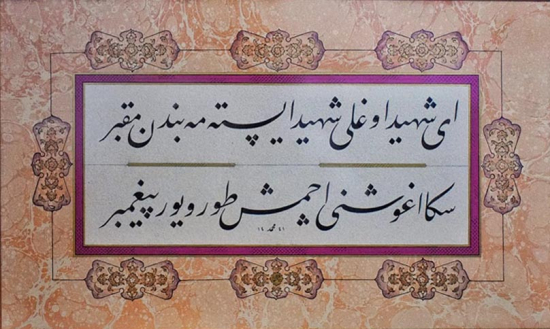 ای شهید اوغلی شهید ایسته مه بندن مقبر
سکا اغوشنی آچمش طورویور پیغمبر
محمد